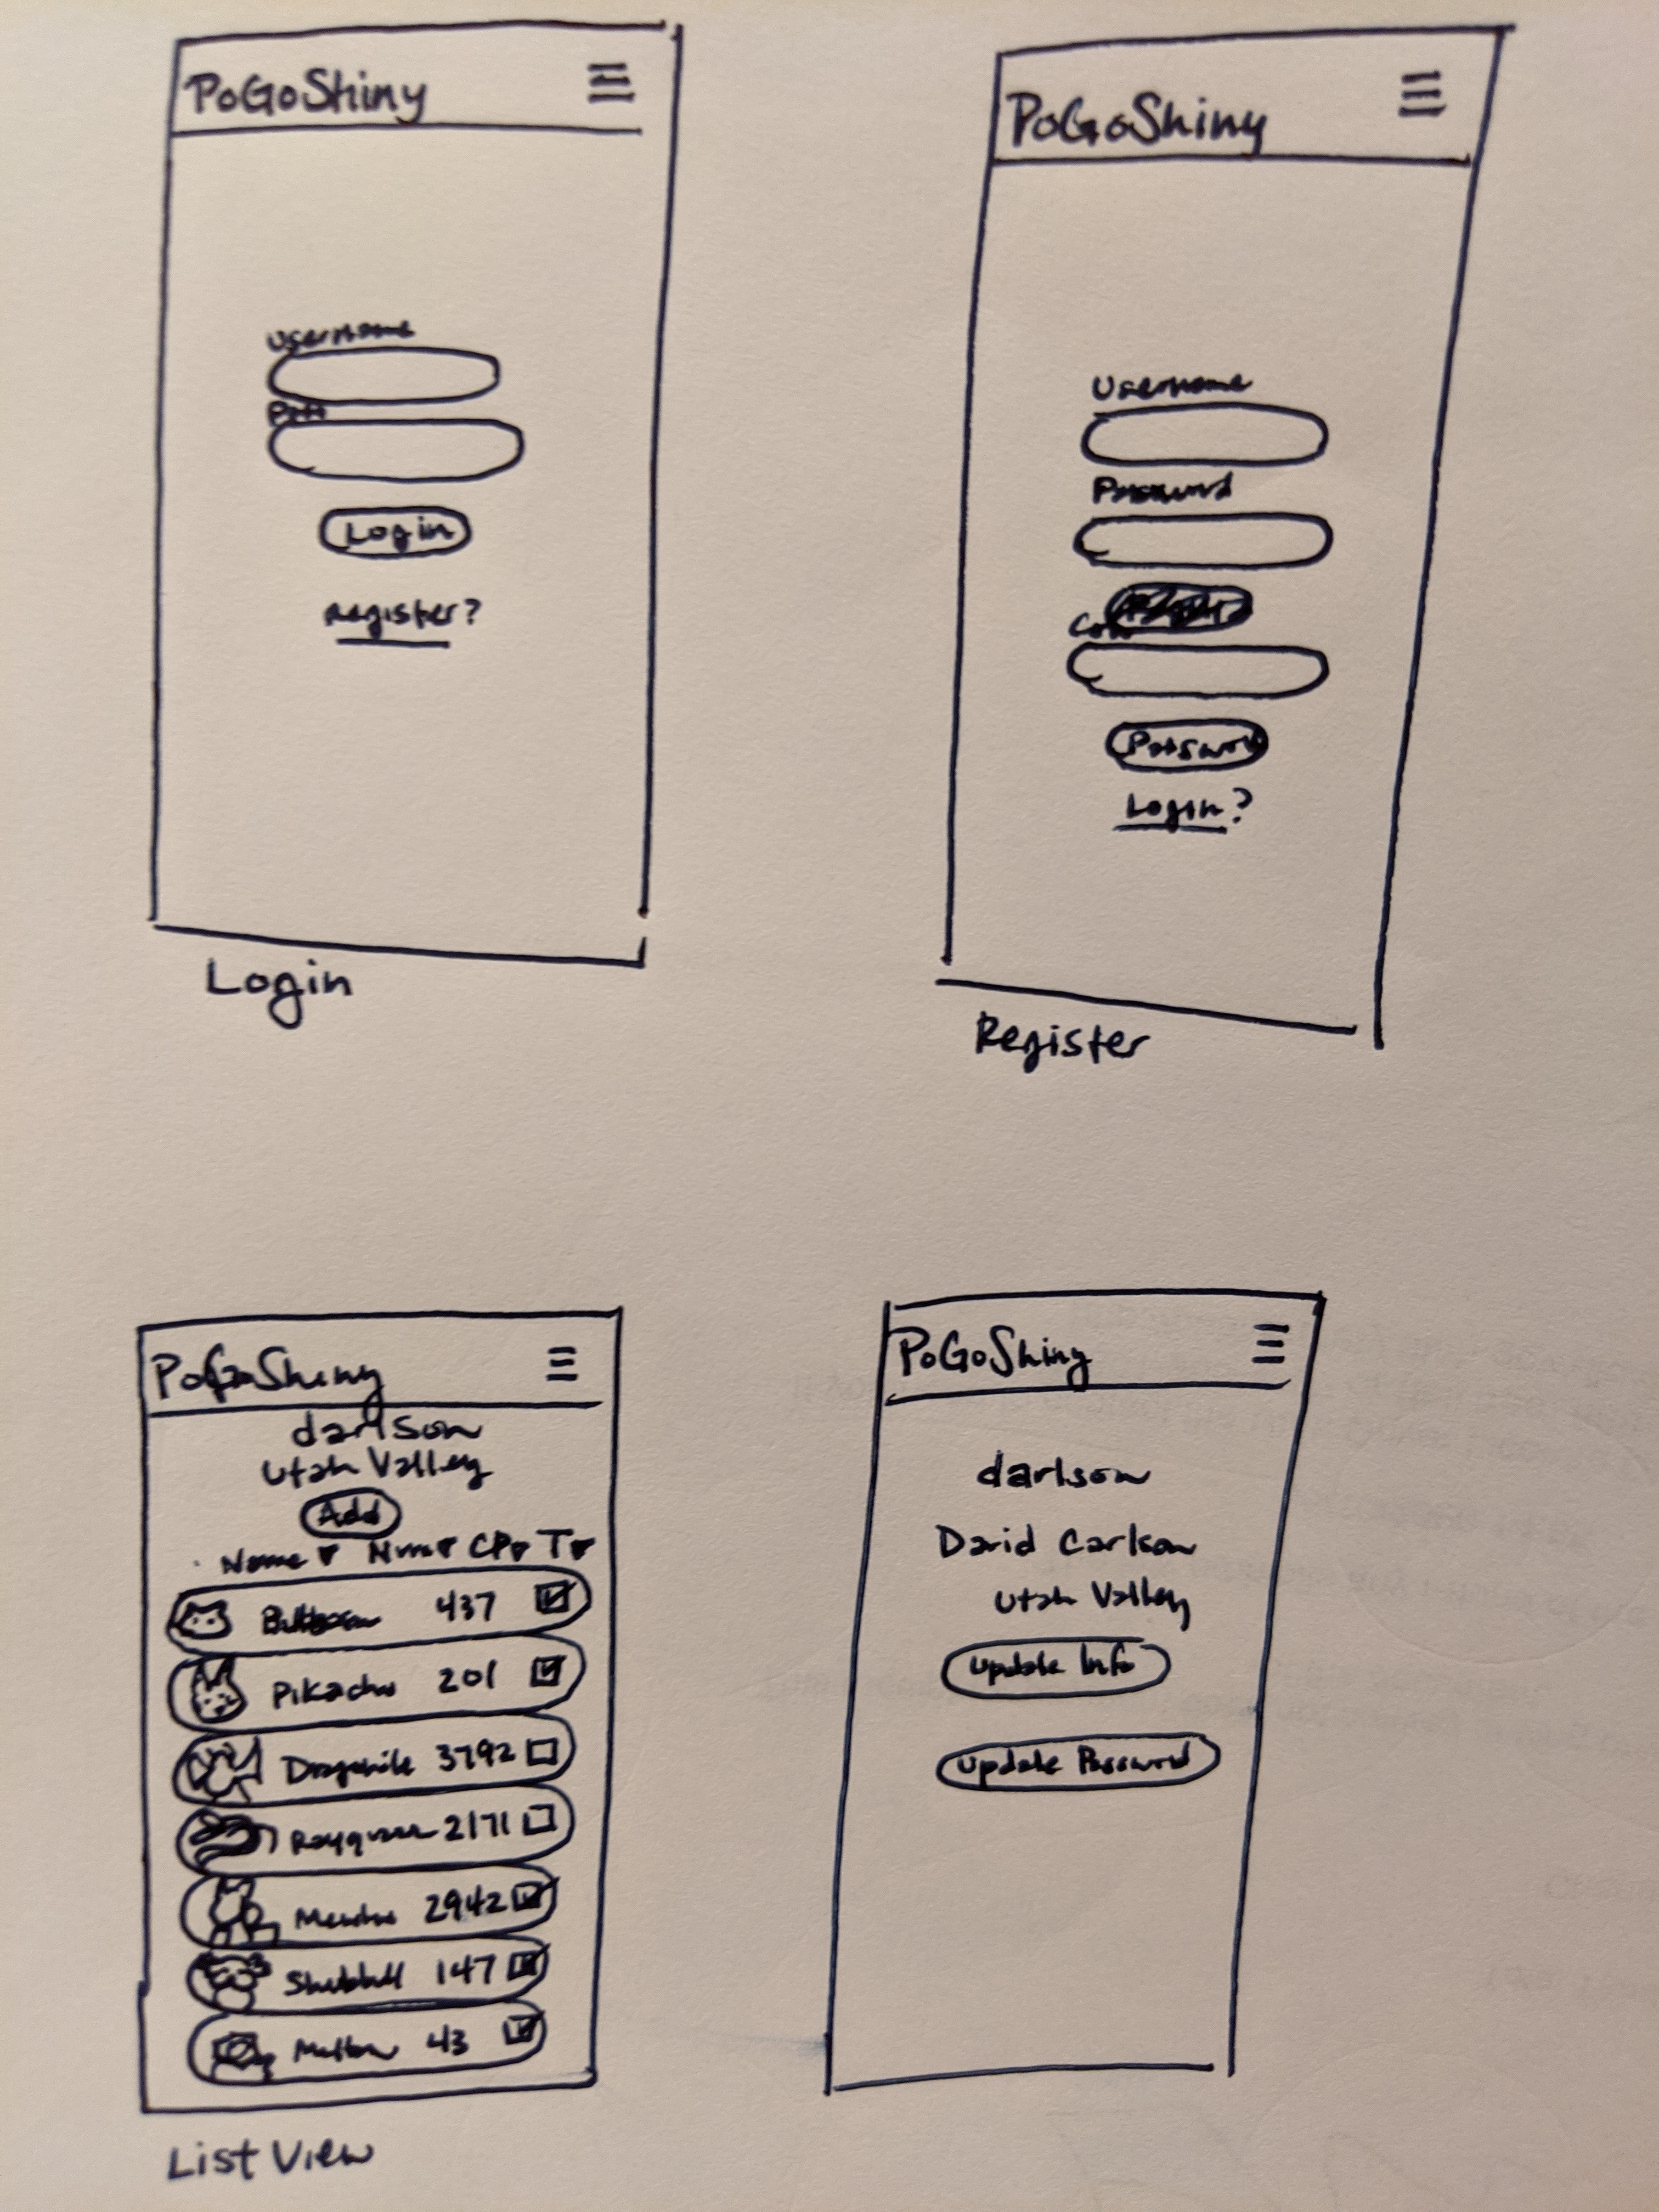 PoGoShiny
Username
Login
Register?
Login
PoGoShiny
Username
Password
Con
Password
Login?
Register
PoGoShiny
darlson
Utah Valley
Add
Name ▼ Num ▼ CP ▼ T ▼
437
Pikachu 201
Dragonite 3792
2171
2942
147
43
List View
PoGoShiny
darlson
David Carlson
Utah Valley
Update Info
Update Password